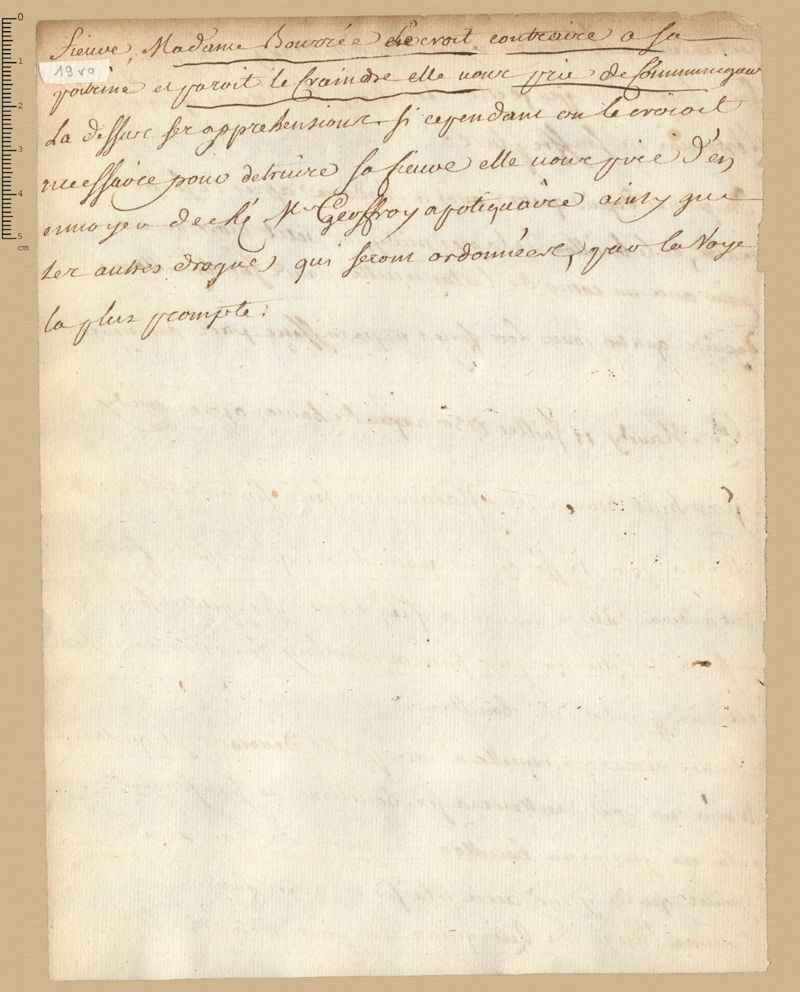 fieuve, Madame Bourrée le croit contraire a sa
19 vo
poitrine et paroit le Craindre elle vous prie de Communiquer
La dessus ses apprehensions. si cependant on le croioit
necessaire pour detruire sa fieuve elle vous prie d'en
envoyer de ché Mr Geoffroy apotiquaire ainsy que
les autres drogues qui seront ordonnées, par la Voye
la plus prompte.